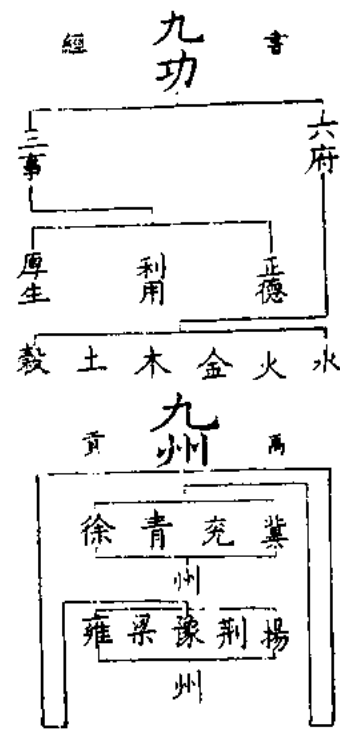 書經
九功
六府
三事
正德
利用
厚生
水火金木土穀
九州
禹貢
冀兗青徐
州
揚荆豫梁雍
州